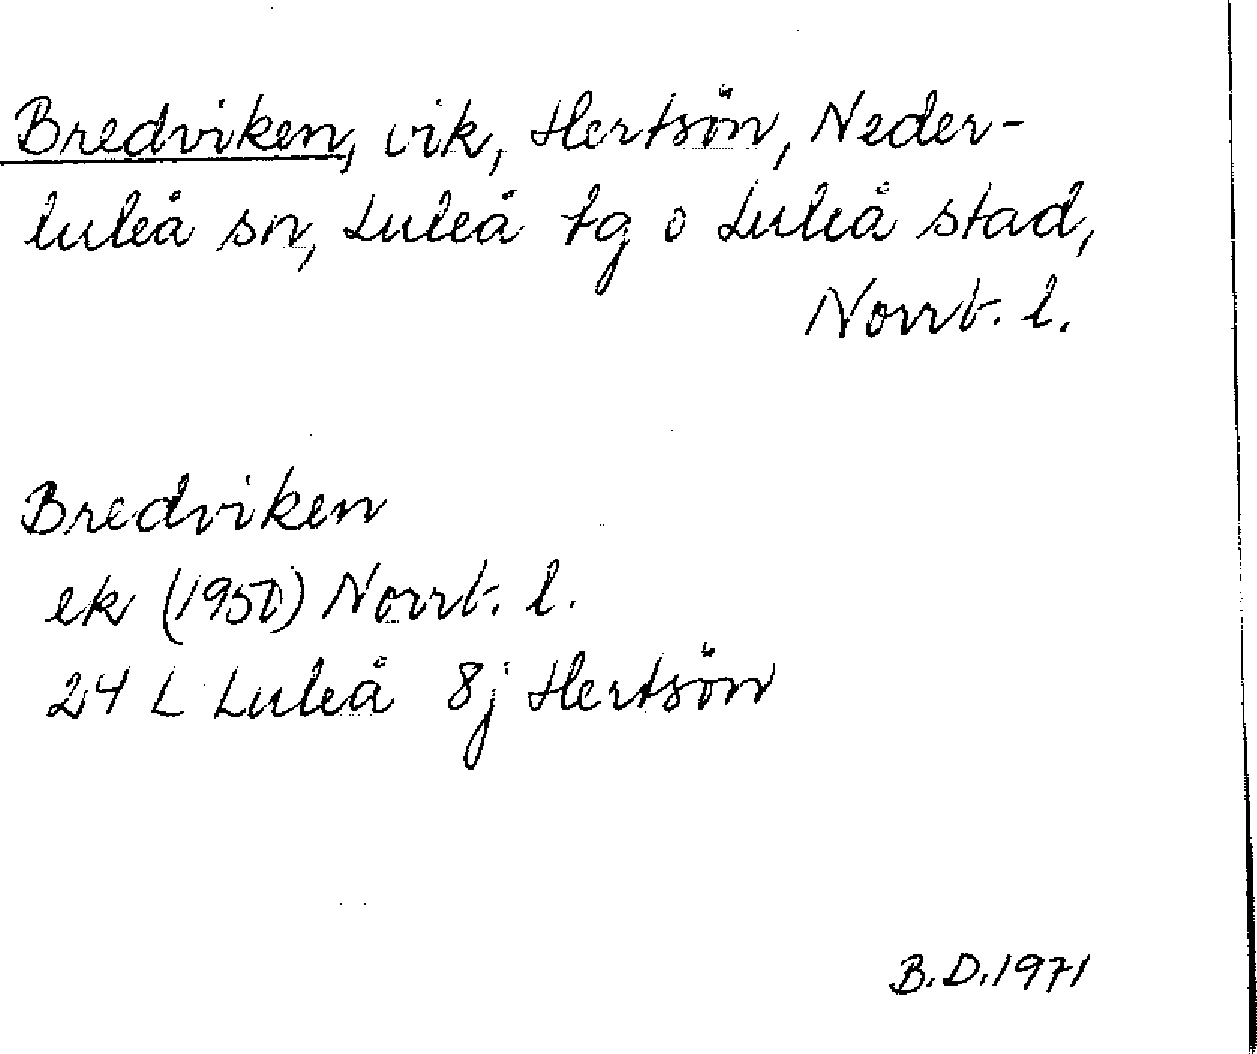 Bredviken, vik, Hertsön, Neder-
luleå sn, Luleå tg o Luleå stad,
Norrb. l.
Bredviken
ek (1950) Norrb. l.
24 L Luleå 8j Hertsön
B.D. 1971